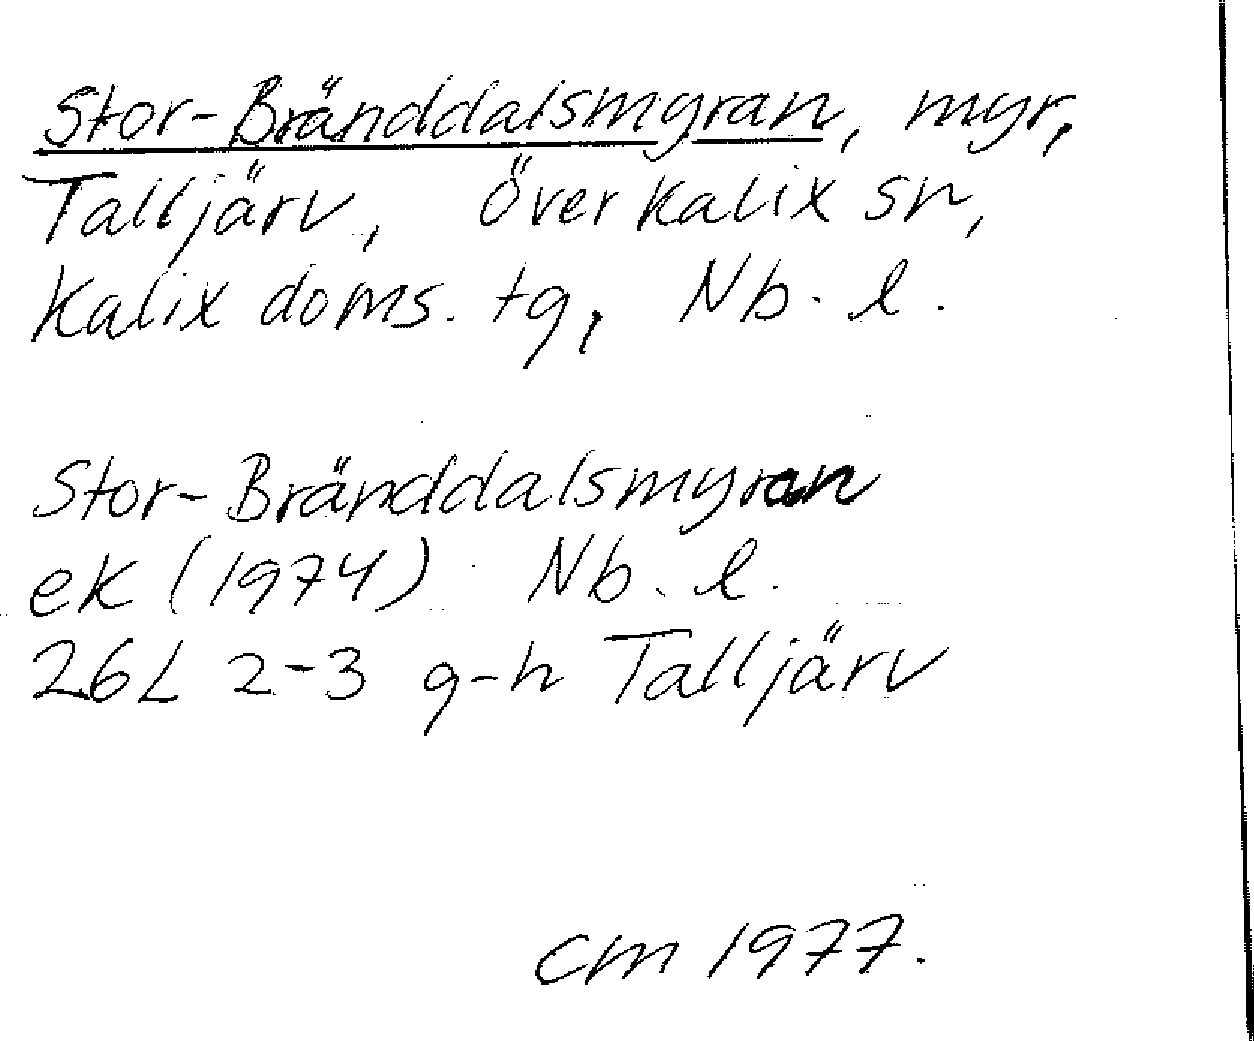 Stor-Bränddalsmyran, myr,
Talljärv, Överkalix sn,
Kalix doms. tg, Nb. l.
Stor-Bränddalsmyran
ek (1974) Nb. l.
26L 2-3 g-h Talljärv
cm 1977.